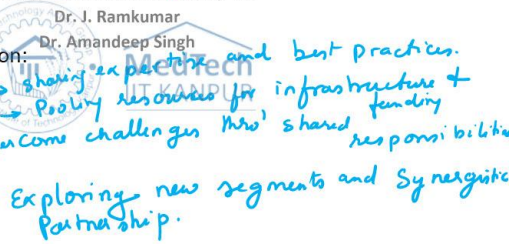 Dr. J. Ramkumar
Dr. Amandeep Singh
on:
MedTech
IIT KANPUR
→ sharing expertise and best practices.
→ Pooling resources for infrastructure & funding
ercome challenges thro' shared responsibilitie
Exploring new segments and Synergistic
Partnership.